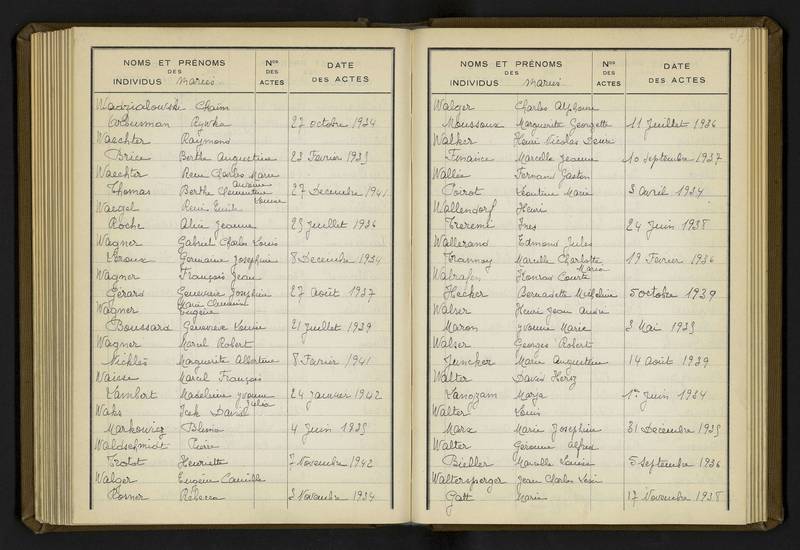 NOMS ET PRÉNOMS
DES
INDIVIDUS Mariés
Nos
DES
ACTES
DATE
DES ACTES
Wadzialowski Chaim
Rywka 27 octobre 1934
Waechter Raymond
Brice Berthe Augustine 23 Fevrier 1935
Waechter René Charles Marie
Antoine
Thomas Berthe Clementine 27 Decembre 1941
Louise
Waegel René Emile
Roche Alice Jeanne 25 Juillet 1936
Wagner Gabriel Charles Louis
Leroux Germaine Josephine 8 Decembre 1934
Wagner François Jean
Gerard Genevieve Josephine 27 Août 1937
Wagner Marie Clement
Eugène
Boussard Genevieve Louise 21 Juillet 1939
Wagner Marcel Robert
Nicklès Marguerite Albertine 8 Fevrier 1941
Waisse Marcel François
Lambert Madeleine Yvonne 24 Janvier 1942
Julia
Waks Icek David
Markowicz Blima 4 Juin 1935
Waldschmidt Pierre
Trotot Henriette 7 Novembre 1942
Walger Eugène Camille
Rosner Rebecca 3 Novembre 1934
NOMS ET PRÉNOMS
DES
INDIVIDUS Mariés
Nos
DES
ACTES
DATE
DES ACTES
Walger Charles Alphonse
Moussoux Marguerite Georgette 11 Juillet 1936
Walker Henri Nicolas Desiré
Finance Marcelle Jeanne 10 Septembre 1937
Wallie Fernand Gaston
Poirot Léontine Marie 3 Avril 1934
Wallendorf Henri
Ines 24 Juin 1938
Wallerand Edmond Jules
Trannoy Marcelle Charlotte 19 Fevrier 1936
Maria
Walrafen Konrad
Hecker Bernadette Micheline 5 octobre 1939
Walser Henri Jean André
Maron Yvonne Marie 3 Mai 1935
Walser Georges Robert
Juncker Marie Augustine 14 Août 1939
Walter David Herz
Langzam Marya 1er Juin 1934
Walter Louis
Marx Marie Josephine 31 Decembre 1935
Walter Alfred
Bieller Marcelle Louise 5 Septembre 1936
Waltersperger Jean Charles
Gatt Marie 17 Novembre 1938